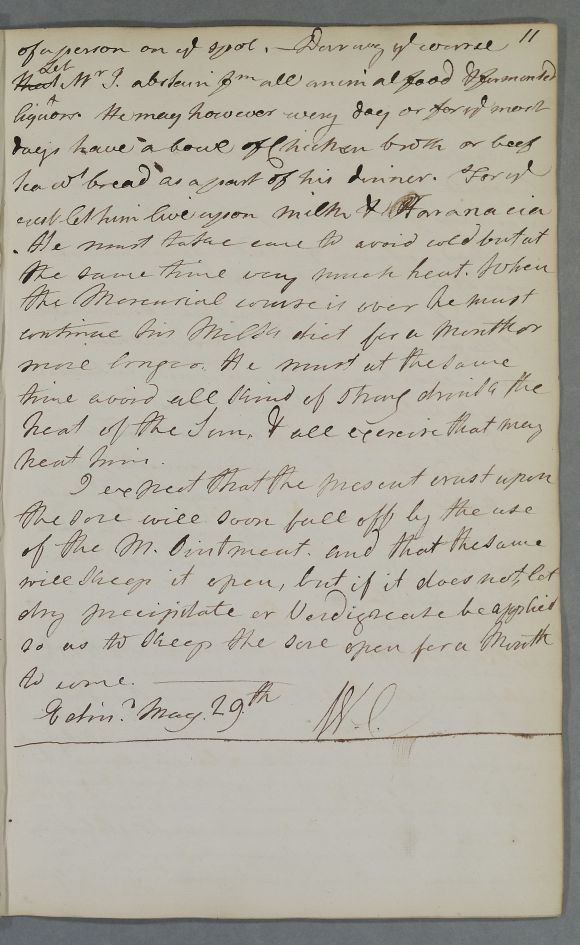 11
of a person on yᵉ spot. — During yᵉ course
Let
That Mʳ J. abstain fm all animal food & fermented
liquors. He may however every day or for yᵉ most
days have a bowl of Chicken broth or beef
tea wᵗ bread as a part of his dinner. & for yᵉ
rest let him live upon milk &
. He must take care to avoid cold but at
the same time very much heat. When
the Mercurial course is over he must
continue his Milk diet for a Month or
more longer. He must at the same
time avoid all kind of strong drink the
heat of the Sun, & all exercise that may
heat him.
I expect that the present crust upon
the sore will soon fall off by the use
of the M. Ointment. and that the same
will keep it open, but if it does not, let
dry precipitate or Verdigrease be applied
so as to keep the sore open for a Month
to come. —
Edinʳ. May. 29.th W. C.